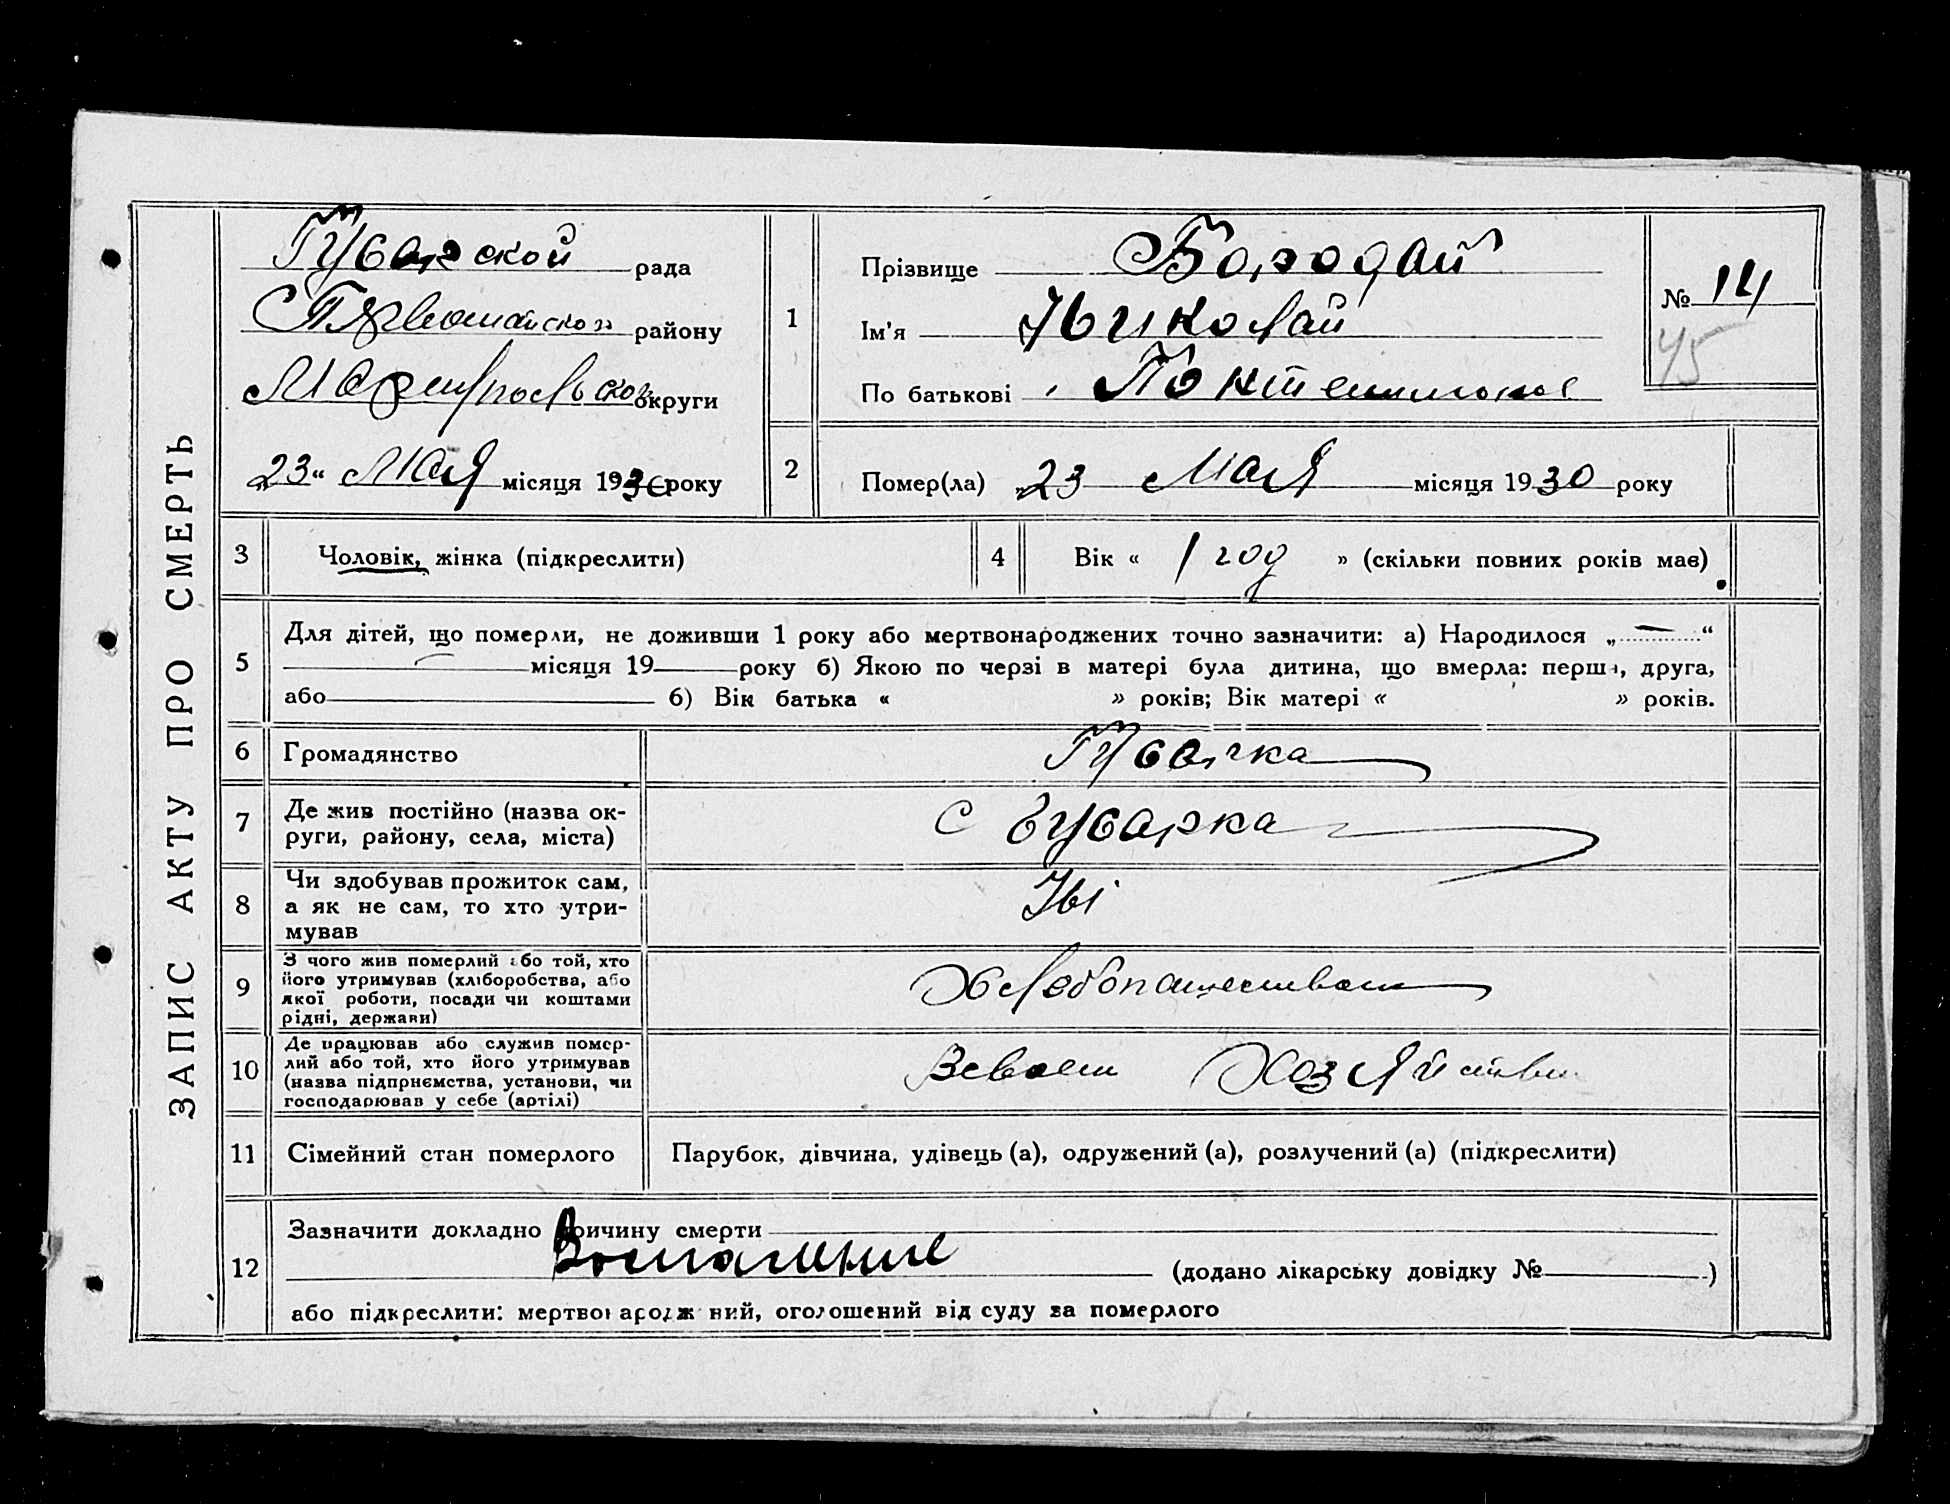 ЗАПИС АКТУ ПРО СМЕРТЬ
Губарской рада
С Первомайского району
Мариупольской округи
„23“ Мая місяця 1930 року
1
Прізвище Бородай
Ім'я Николай
По батькові
№ 14
45
2
Помер(ла) „23 Мая місяця 1930 року
3 Чоловік, жінка (підкреслити)
4 Вік « 1 год » (скільки повних років має)
5
Для дітей, що померли, не доживши 1 року або мертвонароджених точно зазначити: а) Народилося „ — “
місяця 19 року б) Якою по черзі в матері була дитина, що вмерла: перша, друга,
або б) Вік батька « » років; Вік матері « » років.
6 Громадянство
7
Де жив постійно (назва ок-
руги, району, села, міста)
с Губарка
8
Чи здобував прожиток сам,
а як не сам, то хто утри-
мував
9
З чого жив померлий або той, хто
його утримував (хліборобства, або
якої роботи, посади чи коштами
рідні, держави)
Хлебопашеством
10
Де працював або служив помер-
лий або той, хто його утримував
(назва підприємства, установи, чи
господарював у себе (артілі)
В своем Хозяйстве
11 Сімейний стан померлого
Парубок, дівчина, удівець (а), одружений (а), розлучений (а) (підкреслити)
12
Зазначити докладно причину смерти
Воспаление
(додано лікарську довідку № )
або підкреслити: мертвонароджений, оголошений від суду за померлого